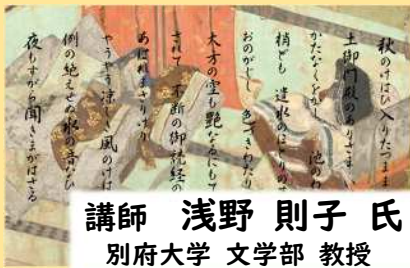 秋のけはひ入りたつまま
土御門殿のありさま、
かたなくをかし 池のわ
梢ども 遣水のほとりの
おのがじし 色づきわたり
大方の空も艶なるにもて
されて 不断の御読経の
あはれまさりけり
やうやう涼しき風のけは
例の絶えせぬ水の音なひ
夜もすがら聞きまがはさる
講師 浅野 則子 氏
別府大学 文学部 教授